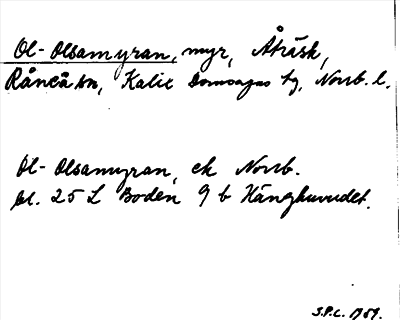 Ol-Olsamyran, myr, Åträsk,
Råneå sn, Kalix Domsagas tg, Norrb. l.
Ol-Olsamyran, ek Norrb.
bl. 25 L Boden 9 b Hängkuvudet.
S.P.L. 1959.